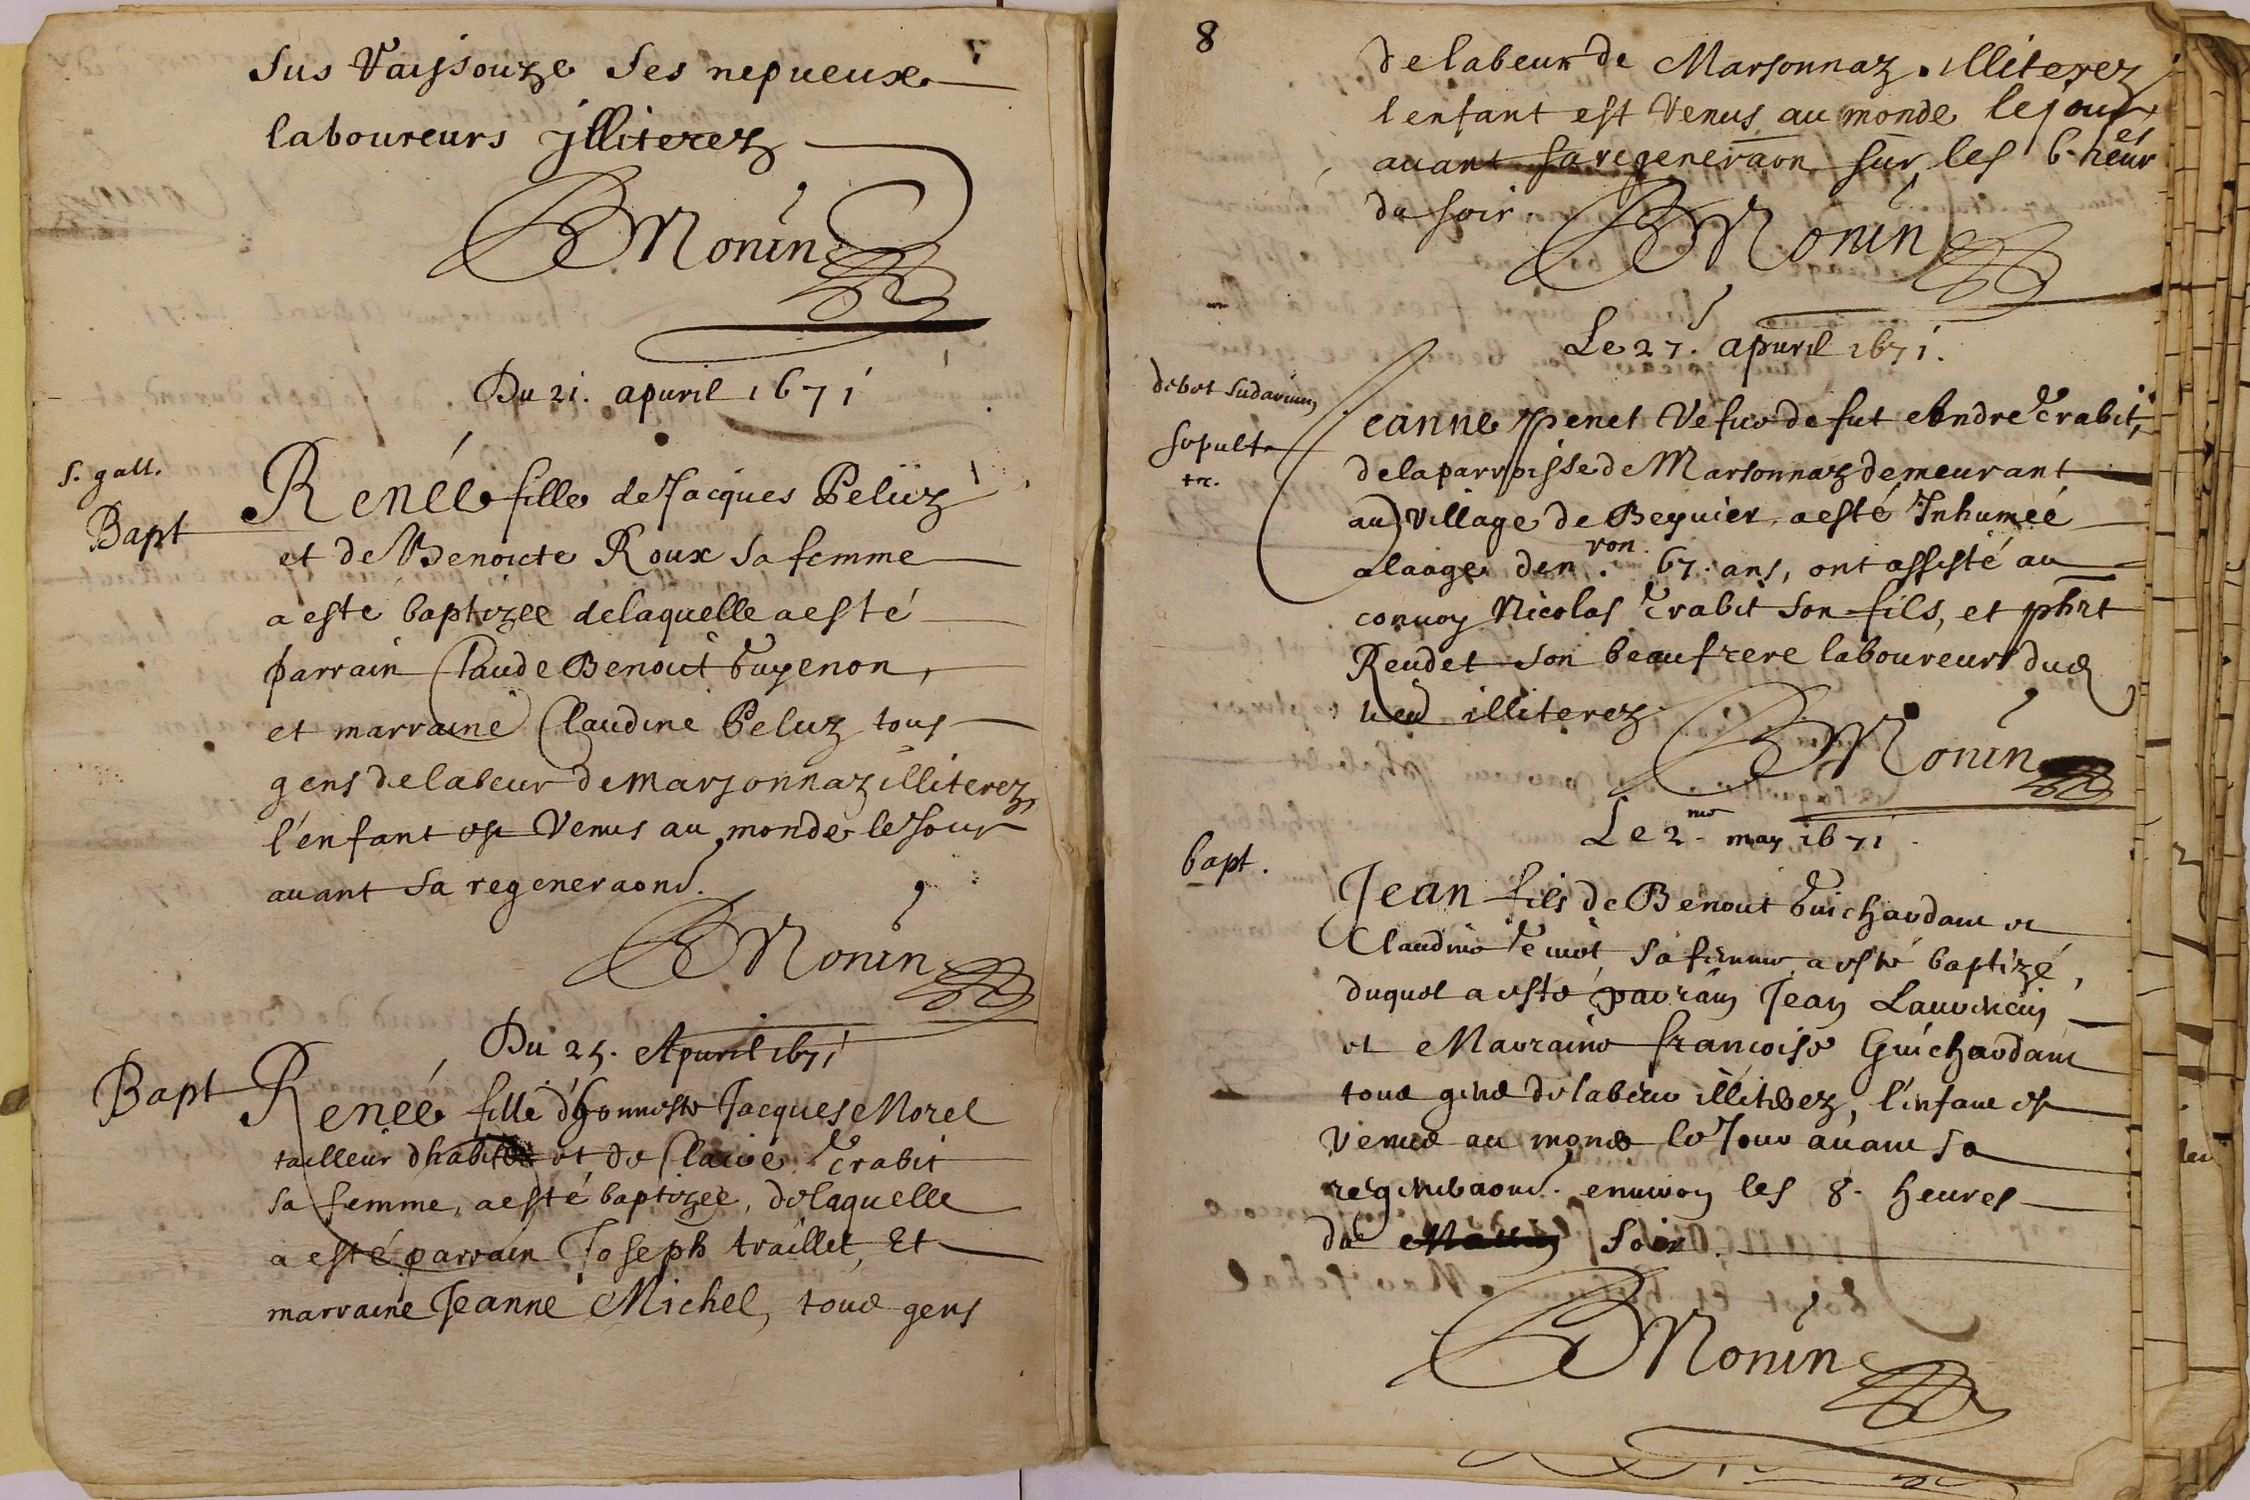 7
sus Vaissouze ses nepueux
laboureurs jlliterez
BMonin
Du 21. apuril 1671
S. gall.
Bapt
Renée fille de Jacques Peluz
et de Benoicte Roux sa femme
a esté baptizee delaquelle a esté
parrain Claude Benoict Guyenon,
et marraine Claudine Peluz tous
gens de labeur de marsonnaz illiterez
l'enfant est Venus au monde le Jour
auant sa regeneraon.
BMonin
Du 25. Apuril 1671
Bapt
Renée fille d'honneste Jacques Morel
tailleur dhabits et de Claire Trabit
sa femme, a esté baptizee, delaquelle
a esté parrain Joseph traillet, Et
marraine Jeanne Michel, tous gens
8
de labeur de Marsonnaz. illiterez
l enfant est Venus au monde le jour
auant sa regeneraon sur les 6. heures
du soir.
BMonin
Le 27. apuril 1671.
debet sudarium
sepult
Jeanne penet Vefue de fut Andre Trabit,
de la parroisse de Marsonnaz demeurant
aud village de Beyuier, a esté Inhumeé
alaage denuiron 67. ans, ont assisté au
conuoy Nicolas Trabit son fils, et phrt
Reudet son beaufrere laboureurs dud
lieu illiterez
BMonin
Le 2me may 1671
bapt.
Jean fils de Benoit Guichardant et
Claudine sa femme a esté baptizé,
duquel a esté parrain Jean
et Marraine francoise Guichardant
tous gens de labeur illiterez, l'enfant est
Venus au monde le Jour auant sa
regeneraon. enuiron les 8. heures
du Matin soir.
BMonin